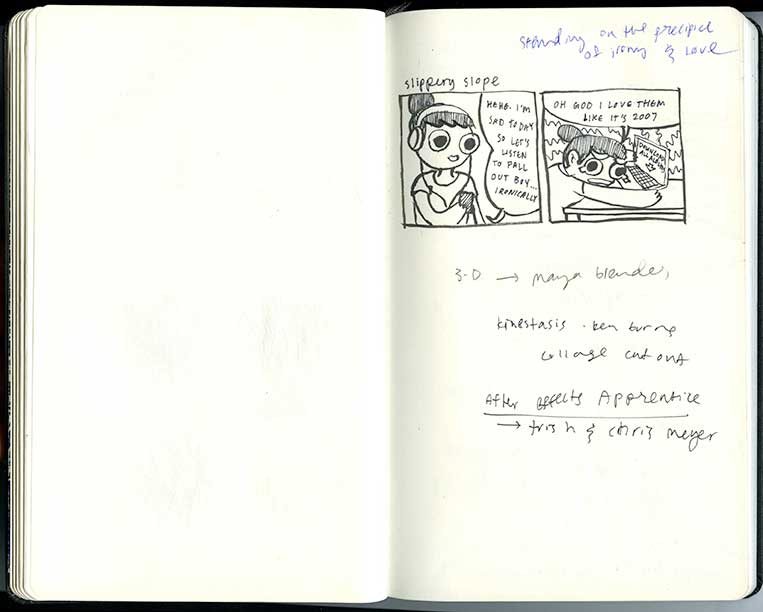 standing on the precipice
of irony & love
slippery slope
HEHE. I'M
SAD TODAY
SO LET'S
LISTEN
TO FALL
OUT BOY...
IRONICALLY
OH GOD I LOVE THEM
LIKE IT'S 2007
DOWNLOAD
ALL ALBUMS
3-D → maya blender,
kinestasis · ken burns
collage cut out
After Effects Apprentice
→ trish & chris meyer